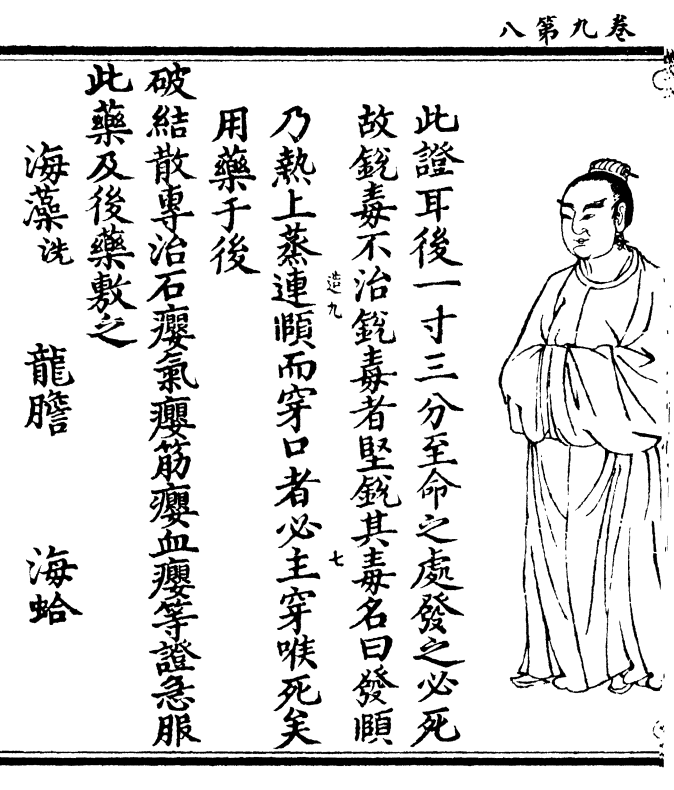 卷九第八
此證耳後一寸三分至命之處發之必死
故銳毒不治銳毒者堅銳其毒名曰發頤
造九
七
乃熱上蒸連頤而穿口者必主穿喉死矣
用藥于後
破結散專治石癭氣癭筋癭血癭等證急服
此藥及後藥敷之
海藻洗 龍膽 海蛤